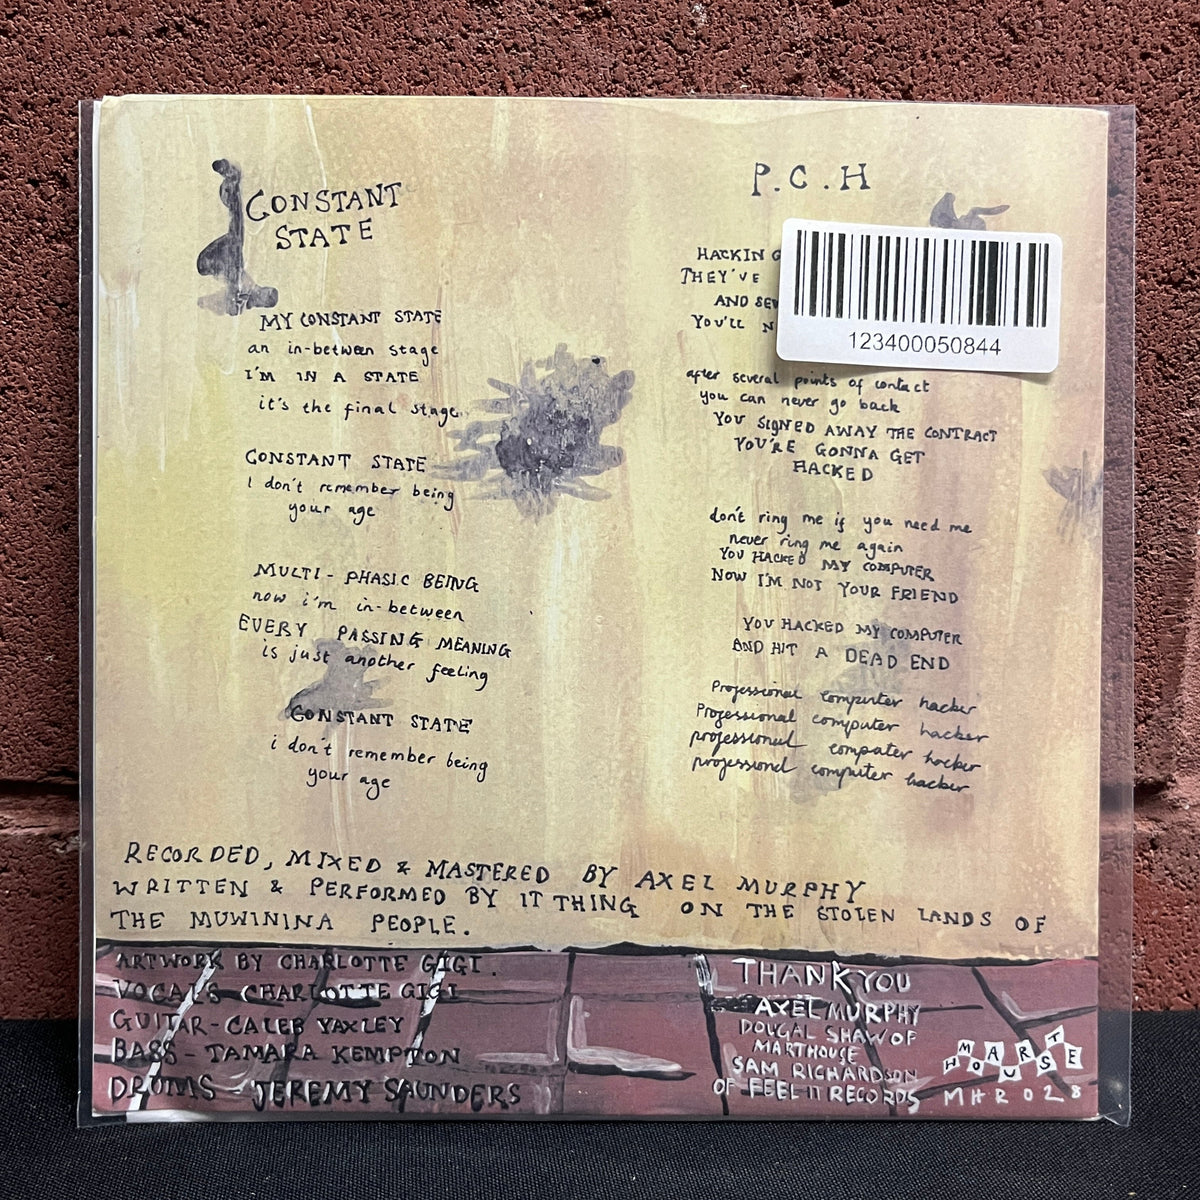 CONSTANT
STATE
MY CONSTANT STATE
an in-between stage
I'M IN A STATE
it's the final stage
CONSTANT STATE
I don't remember being
your age
MULTI-PHASIC BEING
now i'm in-between
EVERY PASSING MEANING
is just another feeling
CONSTANT STATE
i don't remember being
your age
P.C.H
HACKING
THEY'VE
AND
YOU'LL
123400050844
after several points of contact
you can never go back
YOU SIGNED AWAY THE CONTRACT
YOU'RE GONNA GET
HACKED
don't ring me if you need me
never ring me again
YOU HACKED MY COMPUTER
NOW I'M NOT YOUR FRIEND
YOU HACKED MY COMPUTER
AND HIT A DEAD END
Professional computer hacker
Professional computer hacker
professional computer hacker
professional computer hacker
RECORDED, MIXED & MASTERED BY AXEL MURPHY
WRITTEN & PERFORMED BY IT THING ON THE STOLEN LANDS OF
THE MUWININA PEOPLE.
ARTWORK BY CHARLOTTE GIGI.
VOCALS CHARLOTTE GIGI
GUITAR-CALEB YAXLEY
BASS-TAMARA KEMPTON
DRUMS-JEREMY SAUNDERS
THANKYOU
AXEL MURPHY
DOUGAL SHAW OF
MARTHOUSE
SAM RICHARDSON
OF FEEL IT RECORDS
MART
HOUSE
MHR028